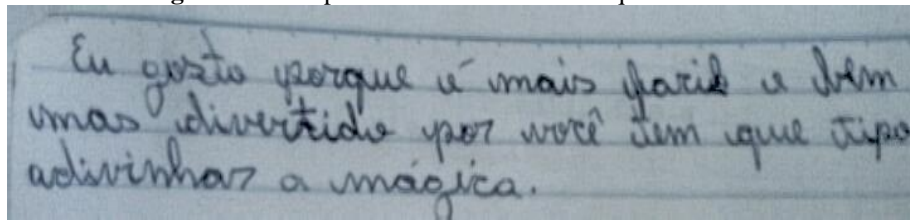 Eu gosto porque é mais facil e bem
mas divertido por você tem que tipo
adivinhar a mágica.